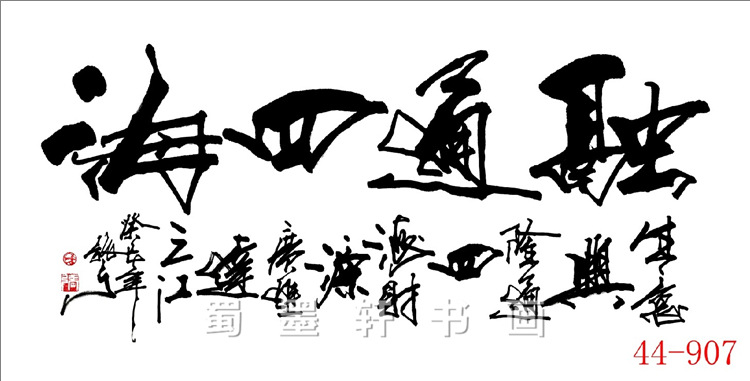 融通四海
生意興隆通四海財源廣進達三江
癸巳年
蜀墨轩书画
44-907